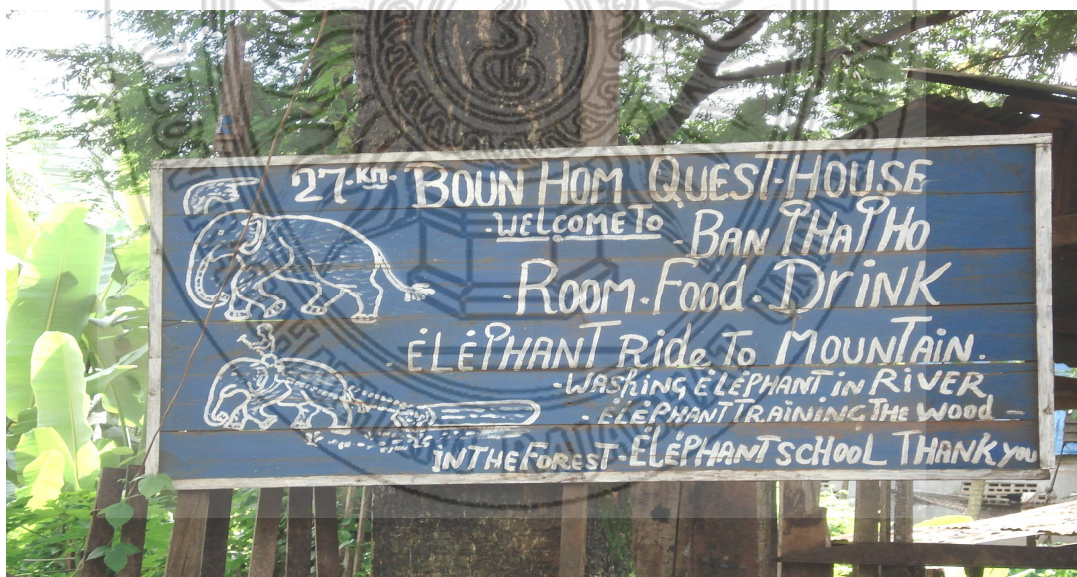 27·KM· BOUN HOM QUEST-HOUSE
-WELCOME TO -BAN PHAPHO
-ROOM-FOOD-DrINK
-ÉLÉPHANT RidE To MOUNTAIN.
-WASHING ÉLÉPHANT iN RIVER
-ÉLÉPHANT TRAINING THE WOOD-
iN THE FOREST-ÉLÉPHANT SCHOOL THANK you